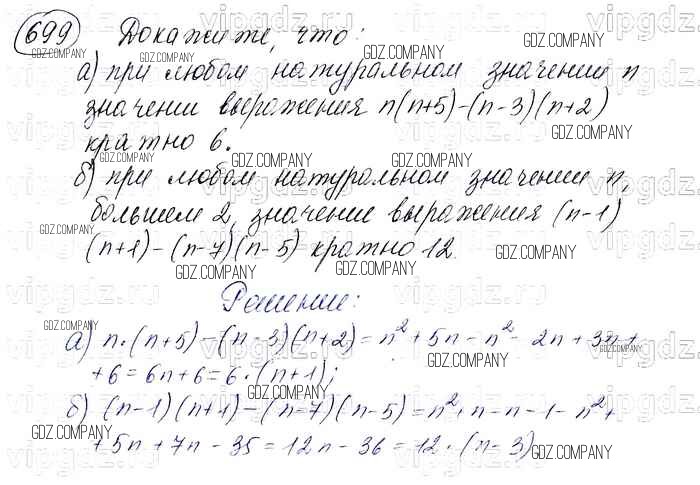 699 Докажите, что:
а) при любом натуральном значении n
значении выражения n(n+5)-(n-3)(n+2)
кратно 6.
б) при любом натуральном значении n,
большем 2, значение выражения (n-1)
(n+1)-(n-7)(n-5) кратно 12.
Решение:
а) n·(n+5)-(n-3)(n+2)=n²+5n-n²-2n+3n+
+6=6n+6=6·(n+1);
б) (n-1)(n+1)-(n-7)(n-5)=n²+n-n-1-n²+
+5n+7n-35=12n-36=12·(n-3)